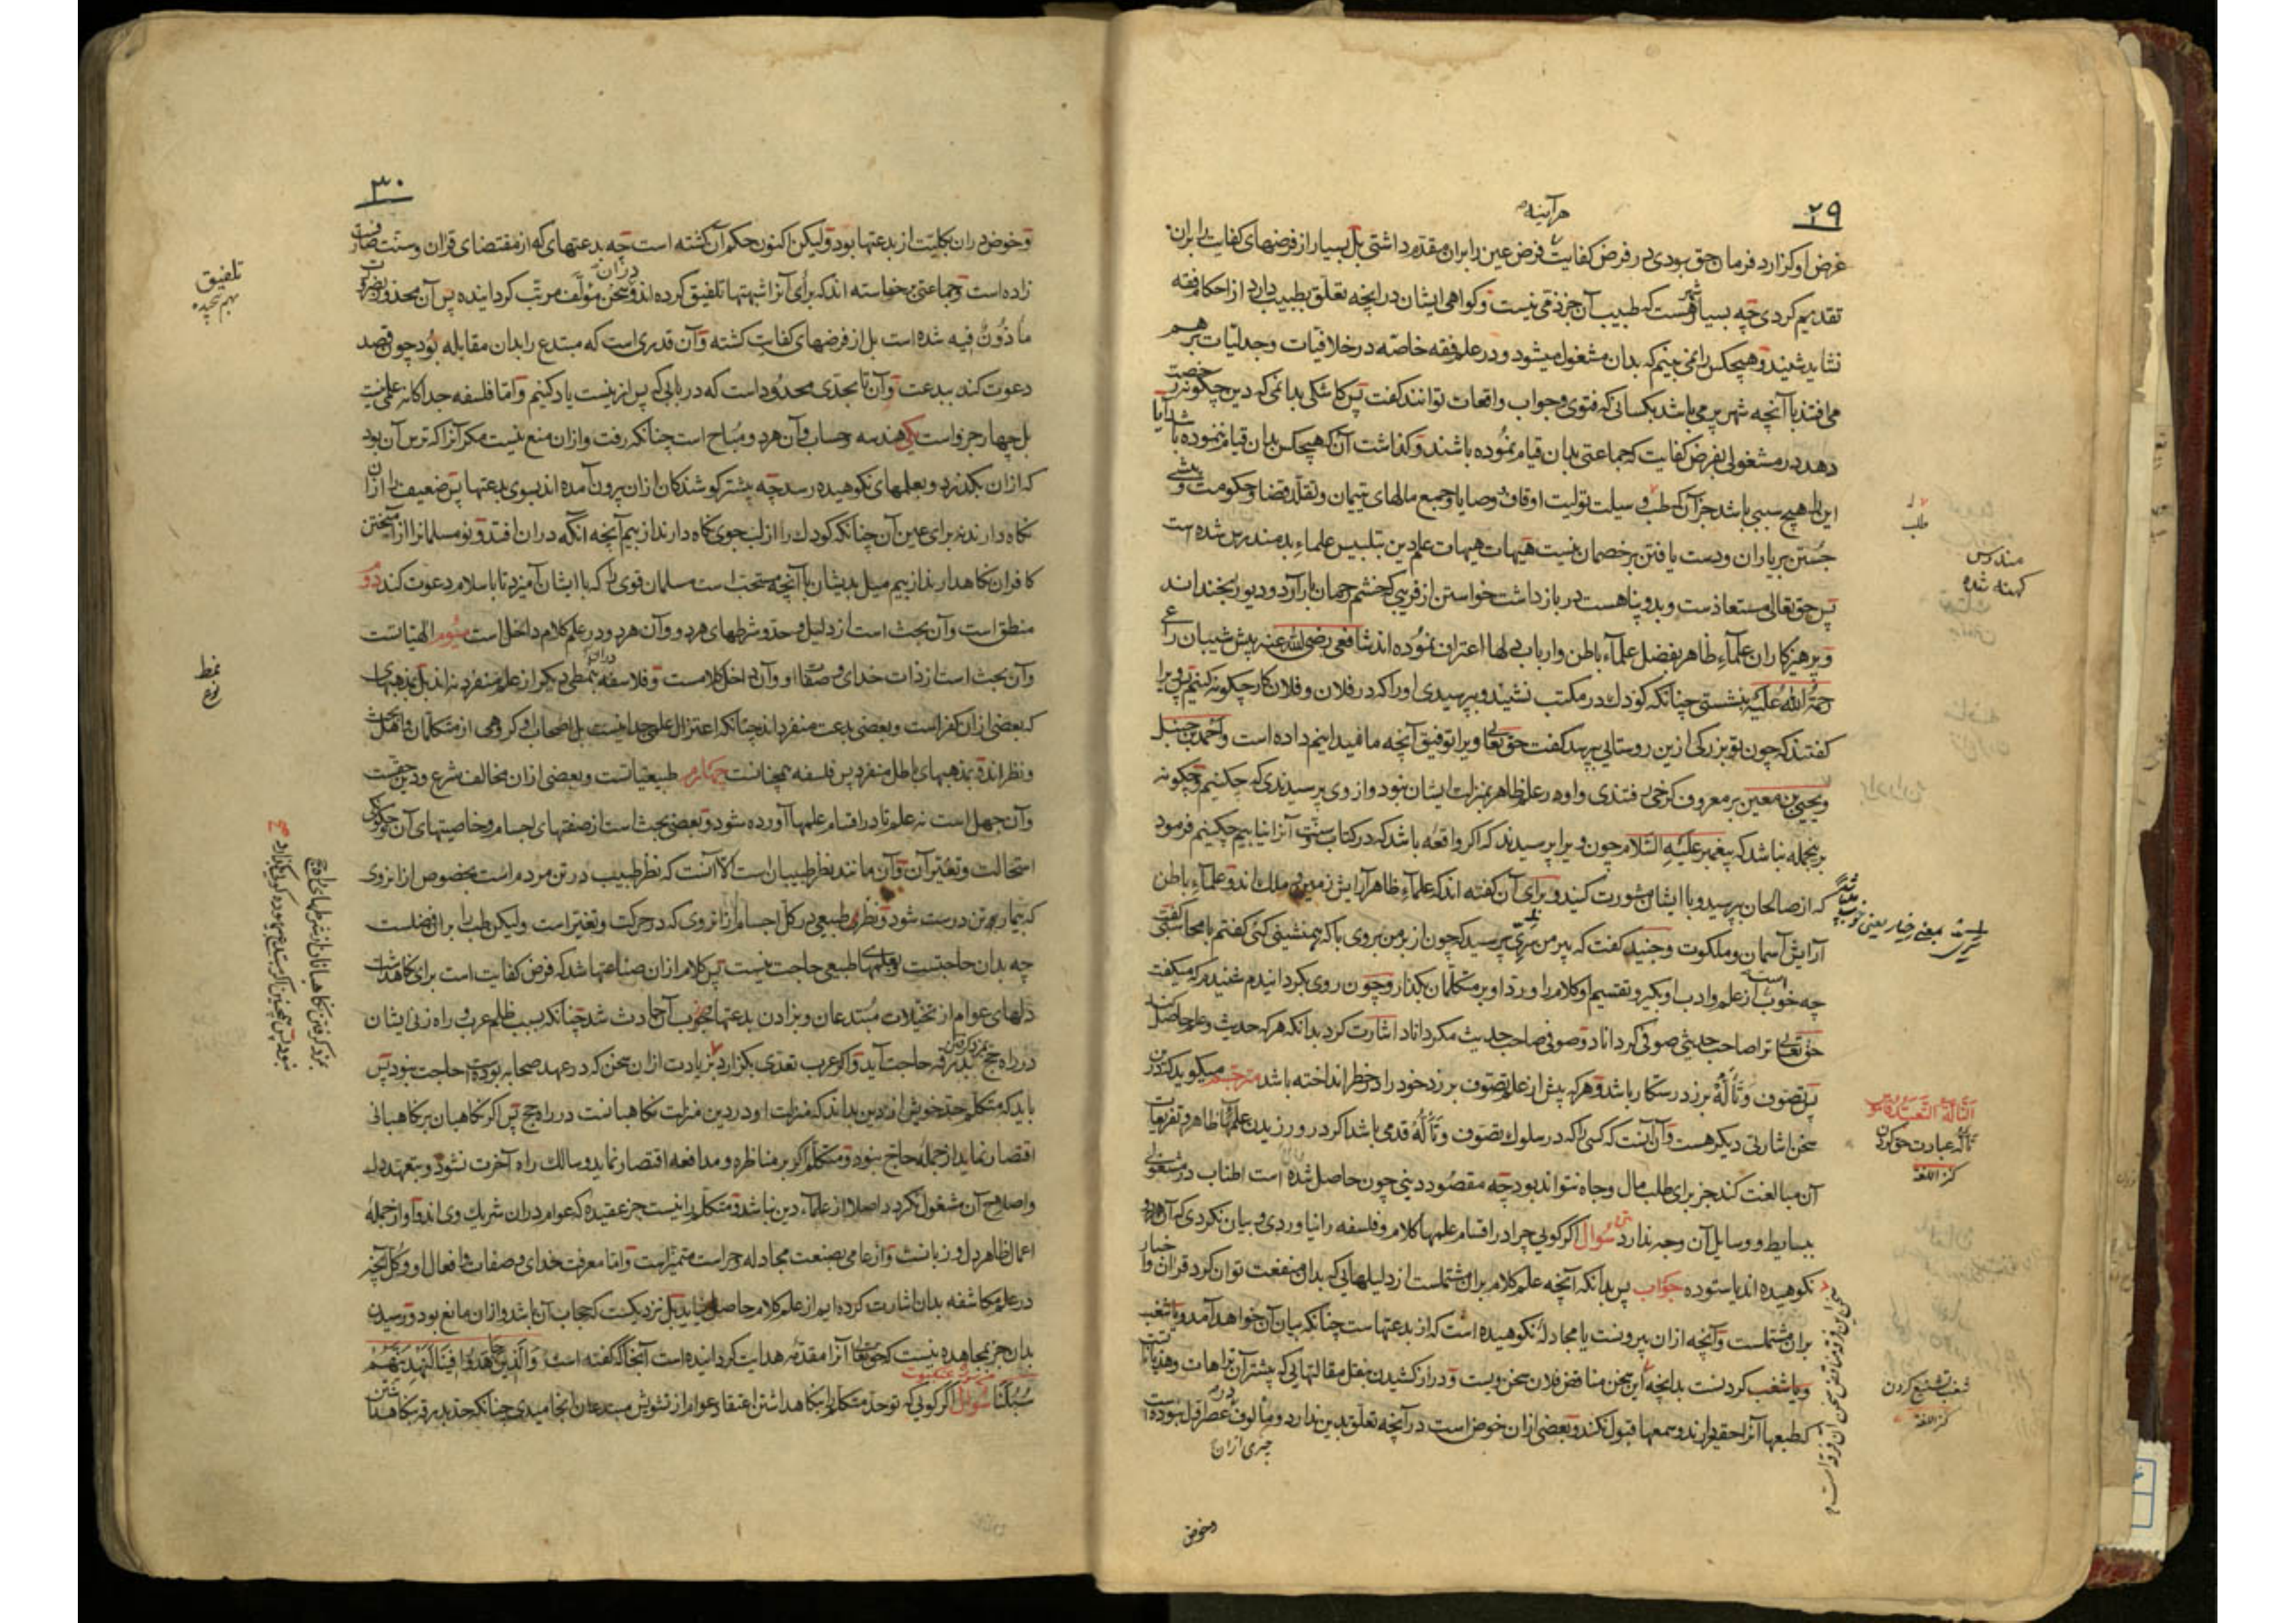 ۲۹
هر آینه
غرض او گزارد فرمان حق بودی در فرض کفایت فرض عین را بران مقدم داشتی بل بسیار از فرضهای کفایت را بران
تقدیم کردی چه بسیار شهر هست که طبیب آن جز ذمّی نیست و گواهی ایشان در آنچه تعلق بطبیب دارد از احکام فقه
نشاید شنید و هیچکس را نمی بینم که بدان مشغول میشود و در علم فقه خاصّه در خلافیات و جدلیات بر هم
می افتد با آنچه شهر پر می باشد بکسانی که فتوی و جواب واقعات توانند گفت پس کاشکی بدانمی که دین چگونه رخصت
دهد در مشغولی بفرض کفایت که جماعتی بدان قیام نموده باشند و گذاشت آن که هیچکس بدان قیام ننموده باشد آیا
این را هیچ سببی باشد جز آن که طب وسیلت تولیت اوقاف و وصایا و جمع مالهای یتیمان و تقلد قضا و حکومت و پیشی
جستن بر یاران و دست یافتن بر خصمان نیست هیهات هیهات علم دین بتلبیس علماء بد مندرس شده است
پس حق تعالی مستعاذ ست و بدو پناهست در بازداشت خواستن از فریبی که خشم رحمان بار آرد و دیو را بخنداند
و پرهیزکاران علماء ظاهر بفضل علماء باطن و ارباب دلها اعتراف نموده اند شافعی رضی الله عنه پیش شیبان راعی
رحمة الله علیه بنشستی چنانکه کودک در مکتب نشیند و بپرسیدی او را که در فلان و فلان کار چگونه کنیم پس ویرا
گفتند که چون تو بزرگی ازین روستایی بپرسد گفت حق تعالی ویرا توفیق آنچه ما میدانیم داده است و احمد بن حنبل
و یحیی بن معین بر معروف کرخی رفتندی و او در علم ظاهر بمنزلت ایشان نبود و از وی پرسیدندی که چکنیم و چگونه
برینجمله نباشد که پیغمبر علیه السلام چون ویرا پرسیدند که اگر واقعه باشد که در کتاب و سنّت آنرا نیابیم چکنیم فرمود
که از صالحان بپرسید و با ایشان مشورت کنید و برای آن گفته اند که علماء ظاهر آرایش زمین و ملک اند و علماء باطن
آرایش آسمان و ملکوت و جنید گفت که پیر من سری پرسید که چون از بر من بروی با که همنشینی کنی گفتم با محاسبی گفت
چه خوب است از علم و ادب او بگیر و تقسیم او کلام را و رد او بر متکلمان بگذار و چون روی بگردانیدم شنیدم که میگفت
حق تعالی ترا صاحب حدیثی صوفی گرداناد و صوفی صاحب حدیث مگرداناد اشارت کرد بدانکه هر که حدیث و علم حاصل کند
پس تصوف و تألّه برزد رستگار باشد و هر که پیش از علم تصوف برزد خود را در خطر انداخته باشد مترجم میگوید که درین
سخن اشارتی دیگر هست و آن آنست که کسی را که در سلوک تصوف و تألّه قدمی باشد اگر در ورزیدن علمهای ظاهر و تفریعات
آن مبالغت کند جز برای طلب مال و جاه نتواند بود چه مقصود دینی چون حاصل شده است اطناب در مشغولی
ببسایط و وسایل آن وجه ندارد سؤال اگر گویی چرا در اقسام علمها کلام و فلسفه را نیاوردی و بیان نکردی که آن هر دو
نکوهیده اند یا ستوده جواب پس بدانکه آنچه علم کلام بران مشتملست از دلیلهایی که بدان منفعت توان کرد قران و اخبار
بران مشتملست و آنچه ازان بیرونست یا مجادلهٔ نکوهیده است که از بدعتهاست چنانکه بیان آن خواهد آمد و یا شغب
و یا شغب کردنست بدانچه این سخن مناقض فلان سخن ویست و دراز کشیدن بنقل مقالتهایی که بیشتر آن ترّاهات و هذیانست
که طبعها آنرا حقیر دارند و سمعها قبول نکند و بعضی ازان خوض است در آنچه تعلق بدین ندارد و مألوف عصر اول نبوده است
چیزی ازان
وخوض
طلب
مندرس
کهنه شده
التألّه التعبّد قاموس
تألّه عبادت حق کردن
کنز اللغة
شغب تشنیع کردن
کنز اللغة
۳۰
و خوض دران بکلیّت از بدعتها بود ولیکن اکنون حکم آن گشته است چه بدعتهای که از مقتضای قران و سنّت صارفست
زاده است و جماعتی برخاسته اند که برای آنرا شبهتها تلفیق کرده اند و دران سخن مؤلّف مرتّب گردانیده پس آن محذور بضرورت
مأذونٌ فیه شده است بل از فرضهای کفایت گشته و آن قدری است که مبتدع را بدان مقابله بود چون قصد
دعوت کند ببدعت و آن تا بحدّی محدود است که در بابی که پس ازینست یاد کنیم و امّا فلسفه جداگانه علمی نیست
بل چهار جزو است یکی هندسه و حساب و آن هر دو مباح است چنانکه رفت و ازان منع نیست مگر آنرا که ترس آن بود
که ازان بگذرد و بعلمهای نکوهیده رسد چه بیشتر کوشندگان ازان برون آمده اند بسوی بدعتها پس ضعیف را ازان
نگاه دارند نه برای عین آن چنانکه کودک را از لب جوی نگاه دارند از بیم آنچه انگه دران افتد و نو مسلمانرا از آمیختن
کافران نگاهدارند از بیم میل بدیشان با آنچه مستحبّ است مسلمان قوی را که با ایشان آمیزد تا باسلام دعوت کند دوم
منطق است و آن بحث است از دلیل و حدّ و شرطهای هر دو و آن هر دو در علم کلام داخل است سیوم الهیّاتست
وآن بحث است از ذات خدای و صفات او و آن داخل کلامست و فلاسفه دران بنمطی دیگر از علم منفرد نه اند بل بمذهبهای
که بعضی ازان کفر است و بعضی بدعت منفرد اند چنانکه اعتزال علمی جدا نیست بل اصحاب او گروهی از متکلمان و اهل بحث
و نظر اند و بمذهبهای باطل منفرد پس فلسفه همچنانست چهارم طبیعیّاتست و بعضی ازان مخالف شرع و دین حق است
وآن جهل است نه علم تا در اقسام علمها آورده شود و بعضی بحث است از صفتهای اجسام و خاصیتهای آن و چگونگی
استحالت و تغیّر آن و آن مانند نظر طبیبان است الا آنست که نظر طبیب در تن مردم است بخصوص ازانروی
که بیمار و تن درست شود و نظر طبیعی در کل اجسام ازانروی که در حرکت و تغیّر است ولیکن طب را بران فضلست
چه بدان حاجتست و بعلمهای طبیعی حاجت نیست پس کلام ازان صناعتها شد که فرض کفایت است برای نگاهداشت
دلهای عوام از تخیّلات مبتدعان و بزادن بدعتها وجوب آن حادث شد چنانکه بسبب ظلم عرب و راه زنی ایشان
در راه حج ببدرقه حاجت آید و اگر عرب تعدّی بگزارد بزیادت ازان سخن که در عهد صحابه بوده است حاجت نبود پس
باید که متکلم حدّ خویش از دین بداند که منزلت او در دین منزلت نگاهبانست در راه حج پس اگر نگاهبان بر نگاهبانی
اقتصار نماید از جملهٔ حاج نبود و متکلم اگر بر مناظره و مدافعه اقتصار نماید و سالک راه آخرت نشود و بتعهد دل
واصلاح آن مشغول نگردد اصلا از علماء دین نباشد و متکلم را نیست جز عقیده که عوام دران شریک وی اند و آن از جمله
اعمال ظاهر دل و زبانست و از عامی بصنعت مجادله و حراست متمیّز است و امّا معرفت خدای و صفات و افعال او و کلّ آنچه
در علم مکاشفه بدان اشارت کرده ایم از علم کلام حاصل نیاید بل نزدیکست که حجاب آن باشد و ازان مانع بود و رسیدن
بدان جز بمجاهده نیست که حق تعالی آنرا مقدّمهٔ هدایت گردانیده است آنجا که گفته است وَالَّذِینَ جَاهَدُوا فِینَا لَنَهْدِیَنَّهُمْ
سُبُلَنَا سؤال اگر گویی که تو حدّ متکلم را بنگاهداشتن اعتقاد عوام از تشویش مبتدعان انجامیدی چنانکه حدّ بدرقه نگاهداشتن
تلفیق
بهم پیچیده
نمط
نوع